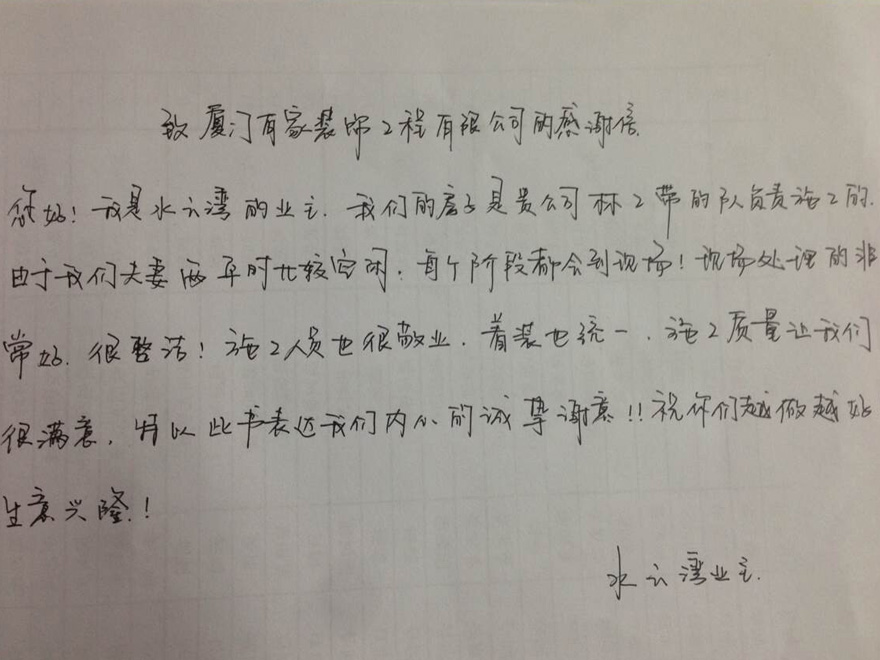 致厦门有家装饰工程有限公司的感谢信
您好！我是水云湾的业主．我们的房子是贵公司林工带的队负责施工的．
由于我们夫妻两平时比较空闲．每个阶段都会到现场！现场处理的非
常好．很整洁！施工人员也很敬业．着装也统一．施工质量让我们
很满意．特以此书表达我们内心的诚挚谢意!!祝你们越做越好
生意兴隆.！
水云湾业主.